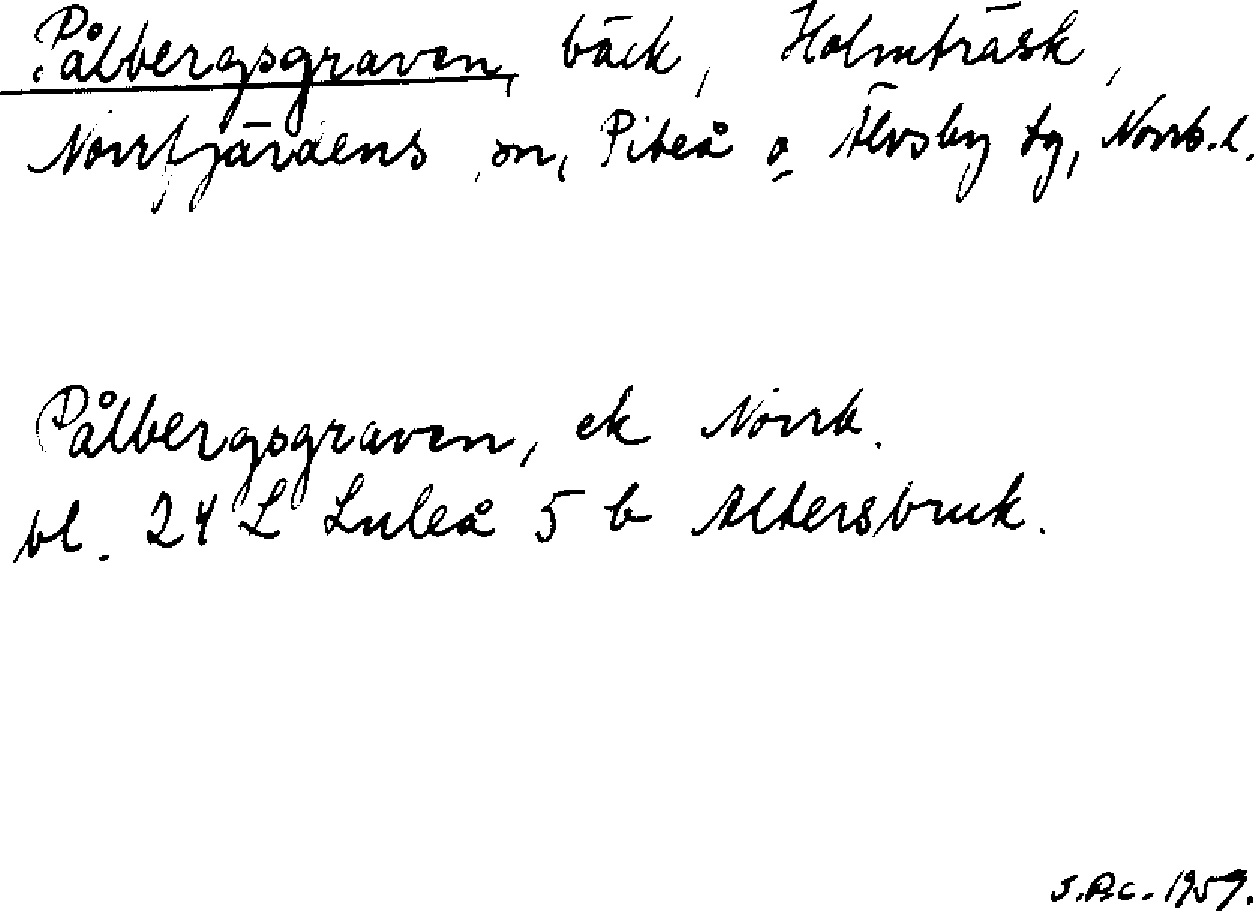 Pålbergsgraven, bäck, Holmträsk,
Norrfjärdens sn, Piteå o Älvsby tg, Norrb.l.
Pålbergsgraven, ek Norrb.
bl. 24 L Luleå 5 b Altersbruk.
1959.